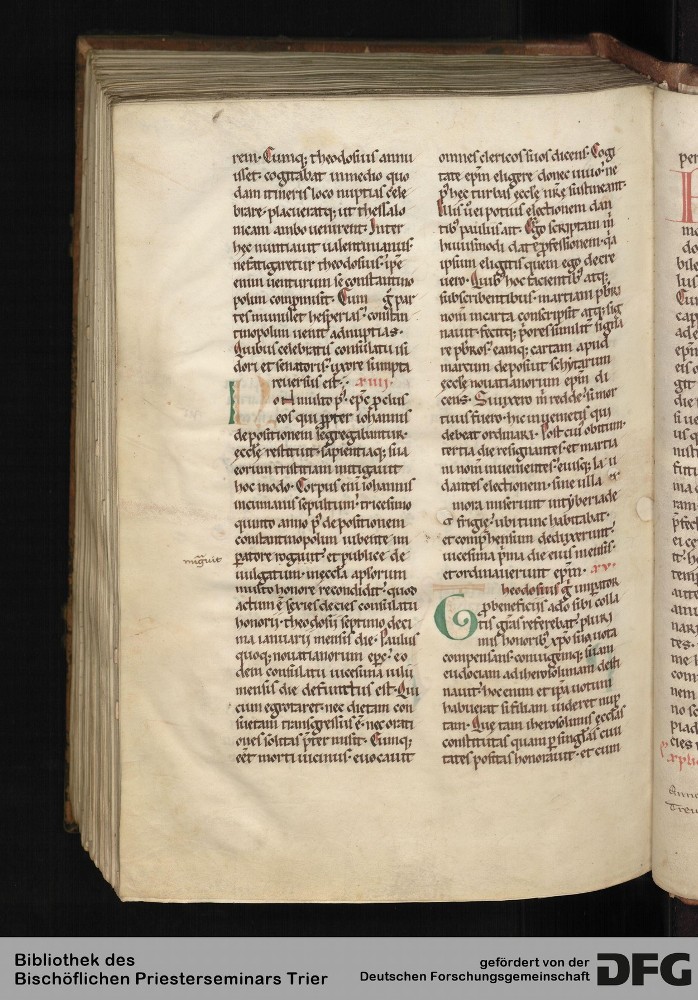 rem. Cumq; theodosius annu
isset. cogitabat inmedio quo
dam itineris loco nuptias cele
brare. placueratq; ut thessalo
nicam ambo uenirent. Inter
hęc nuntiauit ualentinianus
ne fatigaretur theodosius. ipse
enim uenturum se constantino
polim compromisit. Cum g par
tes munisset hesperias. constan
tinopolim uenit ad nuptias.
Quibus celebratis consulatu isi
dori et senatoris uxore sumpta
reuersus est. xiiii.
Non multo p epc proclus
eos qui propter iohannis
depositionem segregabantur.
ecclę restituit. sapientiaq; sua
eorum tristitiam mitigauit
hoc modo. Corpus eni iohannis
incumanis sepultum. tricesimo
quinto anno p depositionem
constantinopolim iubente im
peratore rogauit. et publice de
uulgatum. inęccła apłorum
multo honore recondidit. quod
actum ē sexies decies consulatu
honorii. theodosii septimo deci
ma ianuarii mensis die. Paulus
quoq; nouatianorum epc. eo
dem consulatu uicesima
mensis die defunctus est. Qui
cum egrotaret. nec dietam con
suetam transgressus ē. nec orati
ones solitas ptermisit. Cumq;
eēt morti uicinus. euocauit
migrauit
omnes clericos suos dicens. Cogi
tate epm eligere donec uiuo. ne
p hęc turbas ecclę nrę sustineant.
Illis uei potius electionem dan
tib; paulus ait. Ego scriptam m
huiusmodi date pfessionem. qa
ipsum eligitis quem ego decre
uero. Quib; hoc facientib; atq;
subscribentibus. martiani pbri
nom incarta conscripsit atq; sig
nauit. fecitq; pores similit signa
re pbros. eamq; cartam apud
marcum deposuit schytarum
ecclę nouatianorum epm di
cens. Si uixero m redde. si mor
tuus fuero. hic inuenietis qui
debeat ordinari. Post cui obitum.
tertia die resignantes. et martia
ni nom inuenientes. eiusq; lau
dantes electionem. sine ulla
mora miserunt in tyberiade
frigię. ubi tunc habitabat.
et comphensum deduxerunt.
uicesima pma die eius mensis.
et ordinauerunt epm. xv.
Theodosius g imperator
p beneficiis a do sibi colla
tis gras referebat. pluri
mis honorib; xpo sua uota
compensans. coniugemq; suam
eudociam ad iherosolimam desti
nauit. hoc enim et ipsa uotum
habuerat. si filiam uideret nup
tam. Que tam iherosolimis ecclas
constitutas quam p singlas ciui
tates positas honorauit. et cum
Bibliothek des
Bischöflichen Priesterseminars Trier
gefördert von der
Deutschen Forschungsgemeinschaft
DFG